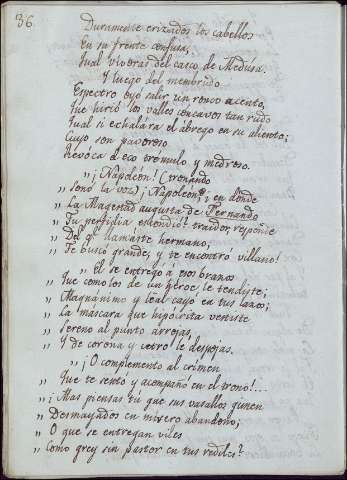 36.
Duramente erizados los cabellos
En su frente confusa,
Qual viveras del casco de Medusa.
Y luego del membrudo
Espectro oyó salir un ronco acento,
Que hirió los valles concavos tan rudo
Qual si exhalára el ábrego en su aliento;
Cuyo son pavoroso
Revóca el eco trémulo y medroso.
„ ¡Napoleón! (tronando
„ Sonó la voz) ¡Napoleón! ¿en dónde
„ La Magestad augusta de Fernando
„ Tu perfidia escondió? traidor responde
„ Del qe. llamáste hermano,
„ Te buscó grande, y te encontró villano!
„ El se entregó a esos brazos
„ Que como los de un héroe le tendiste;
„ Magnánimo y leal cayó en tus lazos;
„ La máscara que hipócrita vestiste
„ Sereno al punto arrojas,
„ Y de corona y cetro le despojas.
„ ¡O complemento al crimen
„ Que te sentó y acompañó en el trono!...
„ ¡Mas piensas tú que sus vasallos gimen
„ Desmayados en misero abandono;
„ O que se entregan viles
„ Como grey sin pastor en tus rediles?